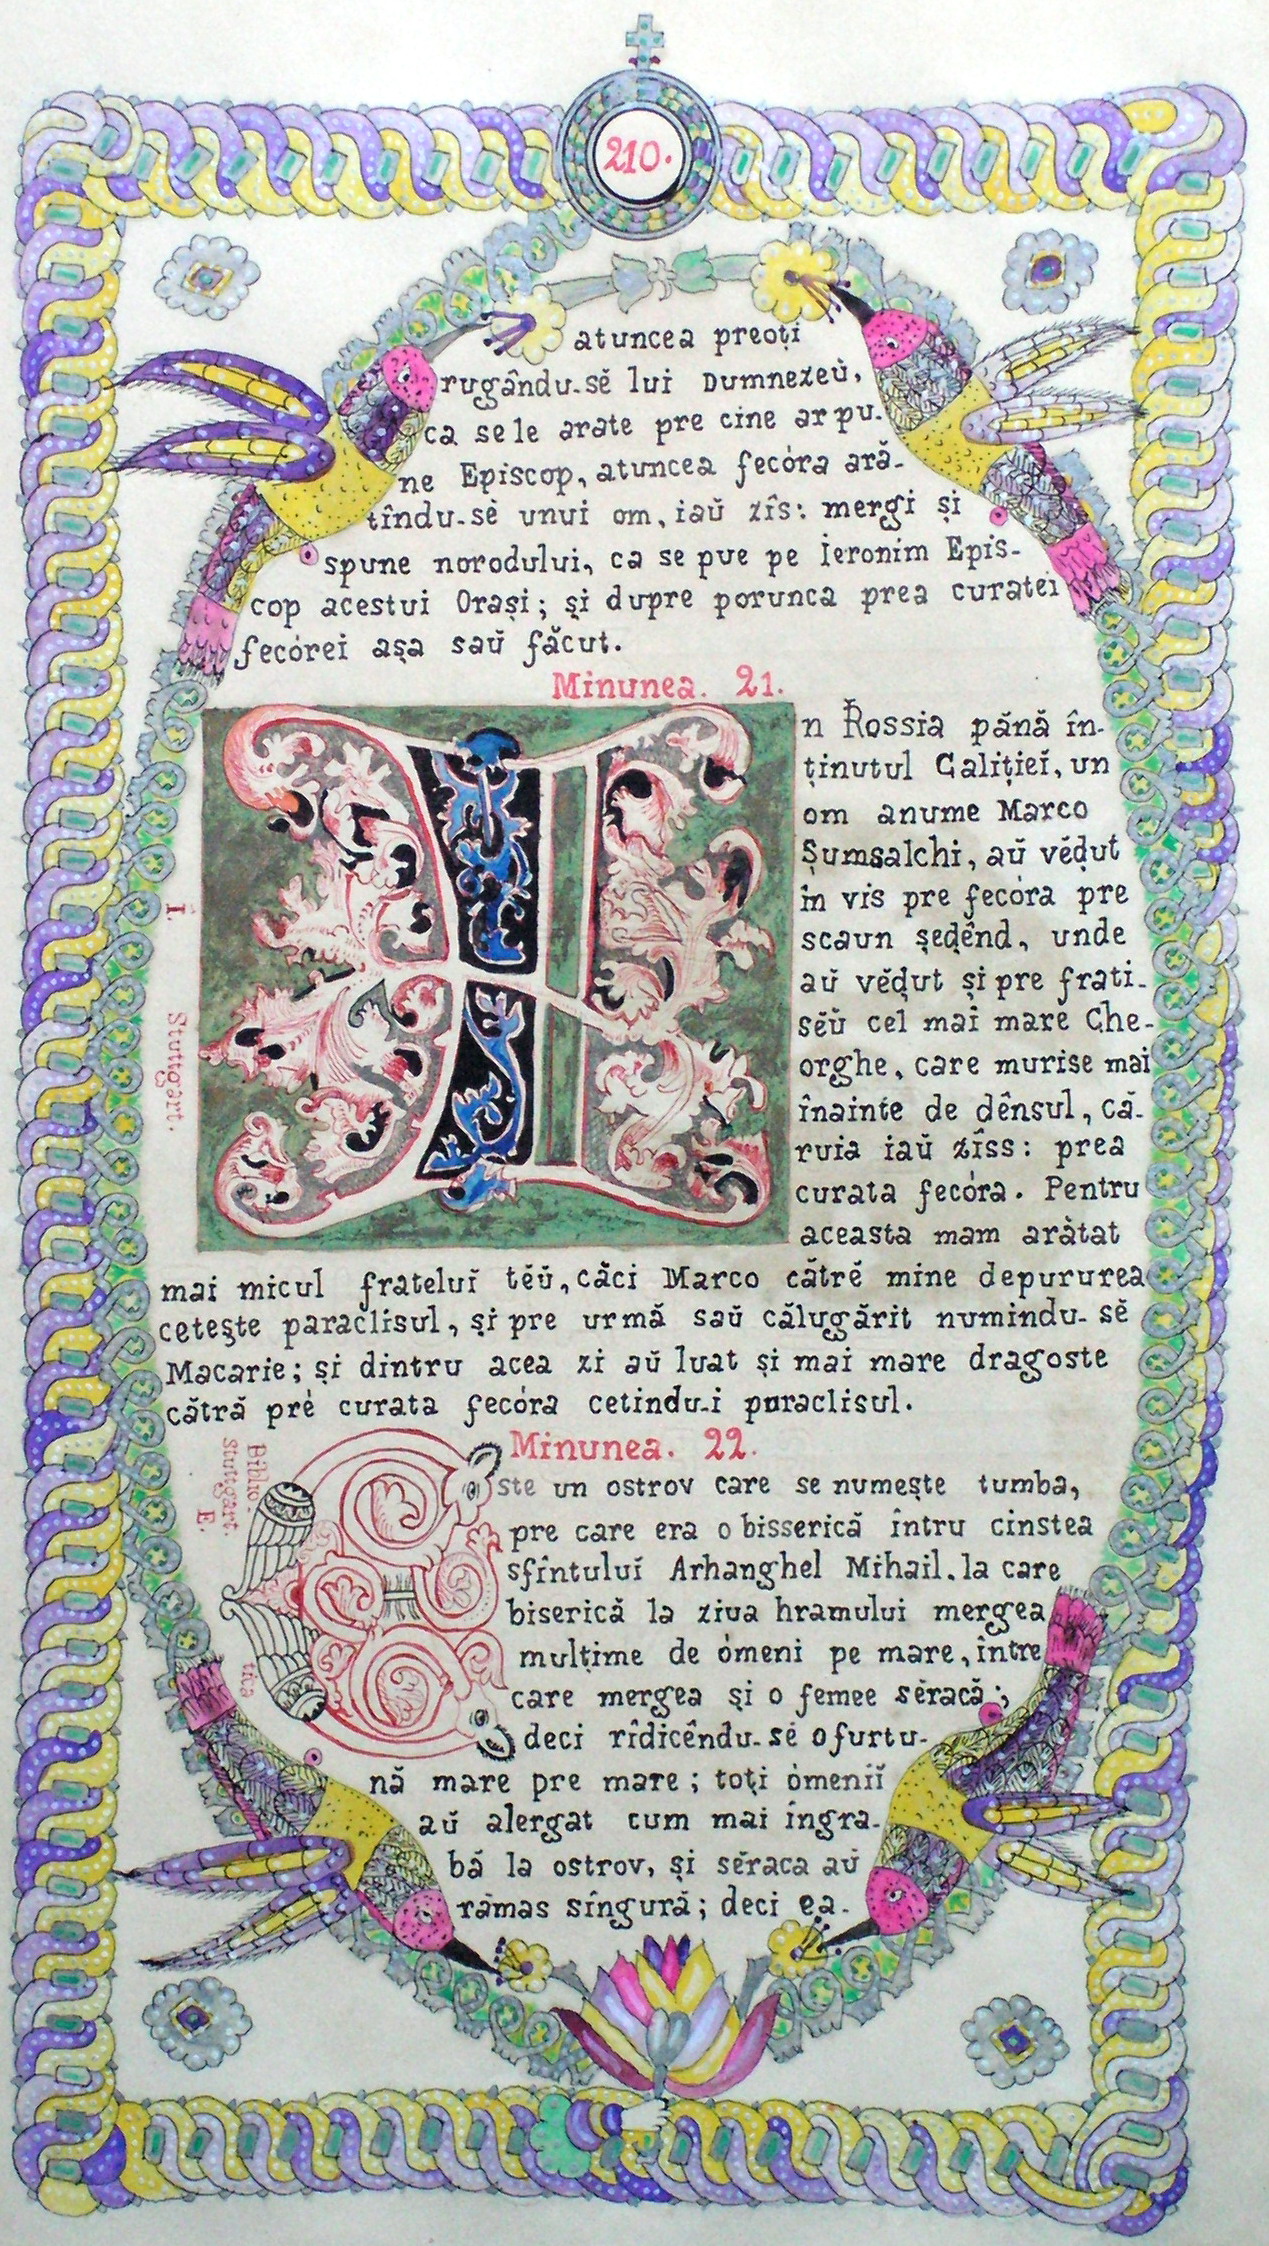 210.
atuncea preoți
rugându-sĕ lui Dumnezeŭ,
ca se le arate pre cine ar pu-
ne Episcop, atuncea fecóra ară-
tîndu-sĕ unui om, iaŭ zîs: mergi și
spune norodului, ca se pue pe Ieronim Epis-
cop acestui Orași; și dupre porunca prea curatei
fecórei așa saŭ făcut.
Minunea. 21.
n Rossia pănă în-
ținutul Galiției, un
om anume Marco
Șumsalchi, aŭ vĕḑut
în vis pre fecóra pre
scaun șeḑĕnd, unde
aŭ vĕḑut și pre frati-
sĕŭ cel mai mare Ghe-
orghe, care murise mai
înainte de dênsul, că-
ruia iaŭ zîss: prea
curata fecóra. Pentru
aceasta mam arătat
mai micul fratelui tĕŭ, căci Marco cătrĕ mine depururea
cetește paraclisul, și pre urmă saŭ călugărit numindu-sĕ
Macarie; și dintru acea zi aŭ luat și mai mare dragoste
cătră pré curata fecóra cetindu-i paraclisul.
Î.
Stutgart.
Minunea. 22.
ste un ostrov care se numește tumba,
pre care era o bisserică întru cinstea
sfîntului Arhanghel Mihail, la care
biserică la ziua hramului mergea
mulțime de ómeni pe mare, între
care mergea și o femee sĕracă;
deci rîdicêndu-sĕ o furtu-
nă mare pre mare; toți ómenii
aŭ alergat cum mai îngra-
bă la ostrov, și sĕraca aŭ
rămas síngură; deci ea-
Biblio.
Stuttgart.
E.
tica